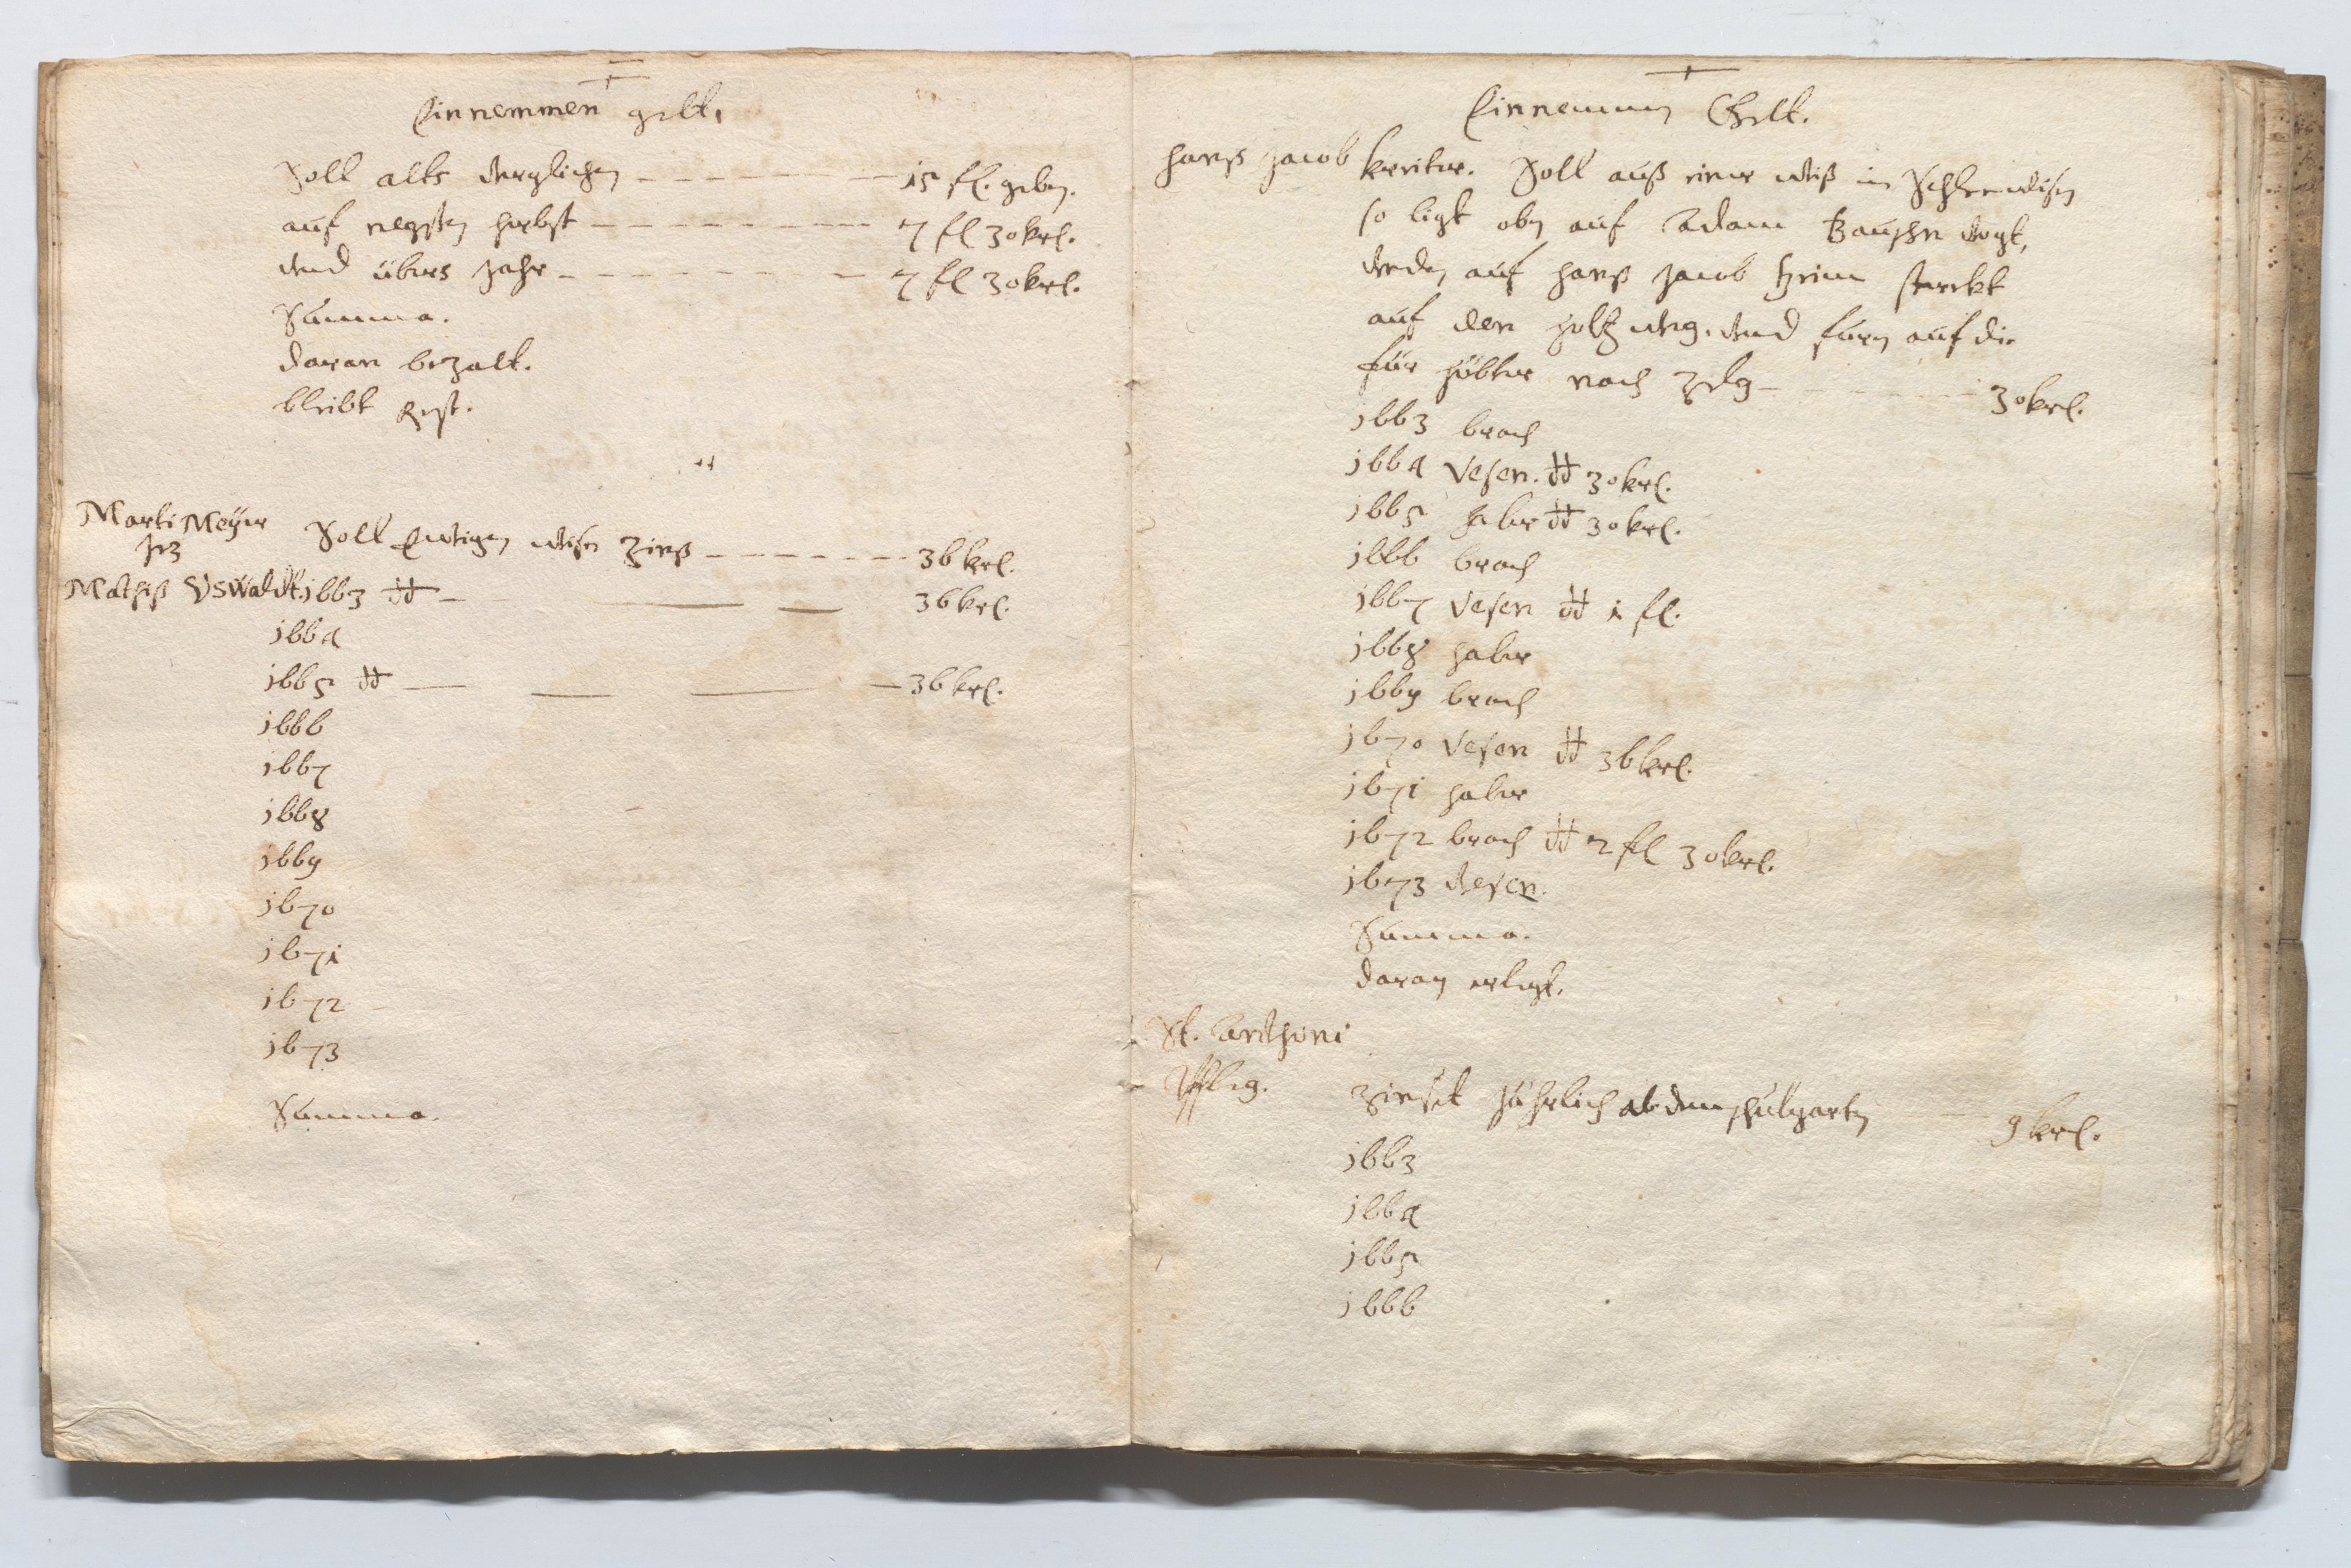 Einnemmen gelt.
Soll alts verglichen 15 fl. geben.
auf negsten herbst 7 fl 30 krl.
vnd übers Jahr 7 fl 30 krl.
Summa.
daran bezalt.
bleibt Rest.
Marti Meyer Soll Ewigen wisen Zinß 36 krl.
Jez
Mathiß Oswaldt. 1663 dt 36 krl.
1664
1665 dt 36 krl.
1666
1667
1668
1669
1670
1671
1672
1673
Summa.
Einnemmen Gelt.
Hanß Jacob Soll auß einer wiß in
so ligt oben auf Adam vogt,
vnden auf Hanß Jacob
auf den holtz weg. vnd auf die
nach Zelg 30 krl.
1663 brach
1664 Vesen. dt 30 krl.
1665 haber dt 30 krl.
1666 brach
1667 Vesen dt 1 fl.
1668 haber
1669 brach
1670 Vesen dt 36 krl.
1671 haber
1672 brach dt 2 fl 30 krl.
1673 Vesen.
Summa.
daran erlegt.
St. Anthoni
Pfleg. Zinset Jährlich ab dem schulgarten 9 krl.
1663
1664
1665
1666